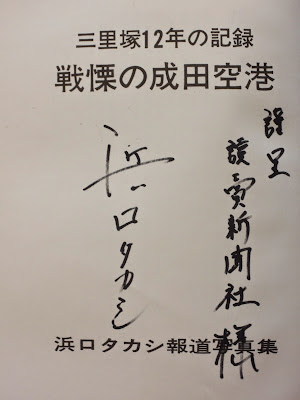 三里塚12年の記録
戦慄の成田空港
謹呈
讀賣新聞社様
浜口タカシ
浜口タカシ報道写真集